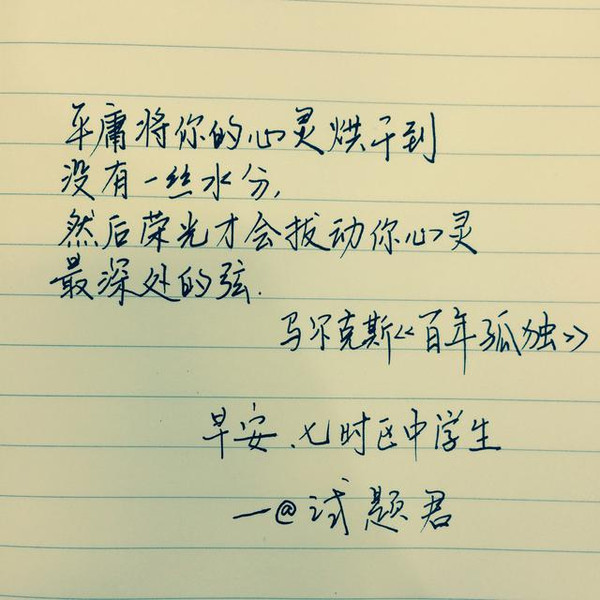 平庸将你的心灵烘干到
没有一丝水分,
然后荣光才会拔动你心灵
最深处的弦.
马尔克斯《百年孤独》
早安、七时区中学生
—@试题君